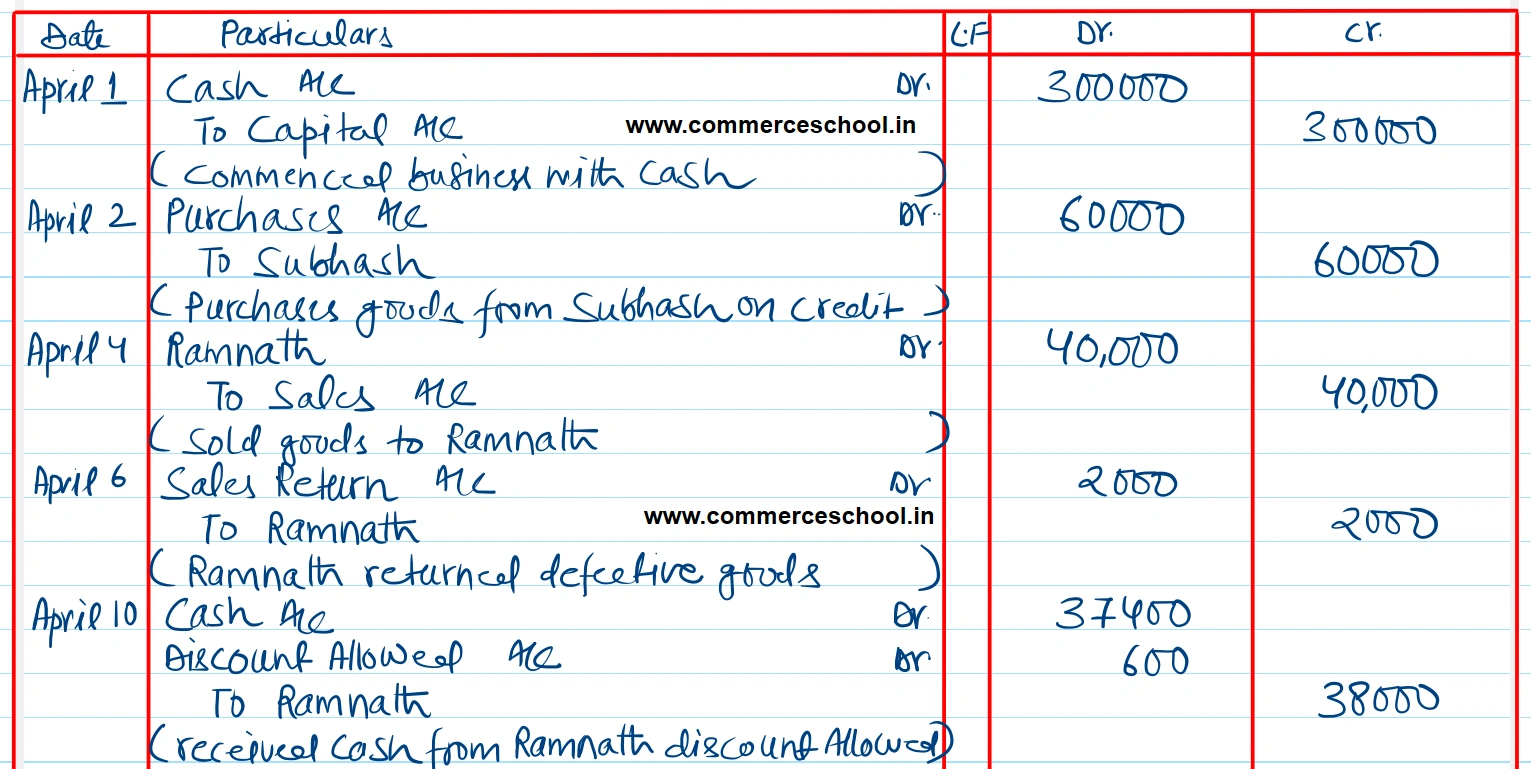 Date Particulars L.F Dr. Cr.
April 1 Cash A/c Dr. 300000
To Capital A/c www.commerceschool.in 300000
(Commenced business with cash)
April 2 Purchases A/c Dr. 60000
To Subhash 60000
(Purchases goods from Subhash on credit)
April 4 Ramnath Dr. 40,000
To Sales A/c 40,000
(Sold goods to Ramnath)
April 6 Sales Return A/c Dr 2000
To Ramnath www.commerceschool.in 2000
(Ramnath returned defective goods)
April 10 Cash A/c Dr. 37400
Discount Allowed A/c Dr 600
To Ramnath 38000
(received cash from Ramnath discount Allowed)